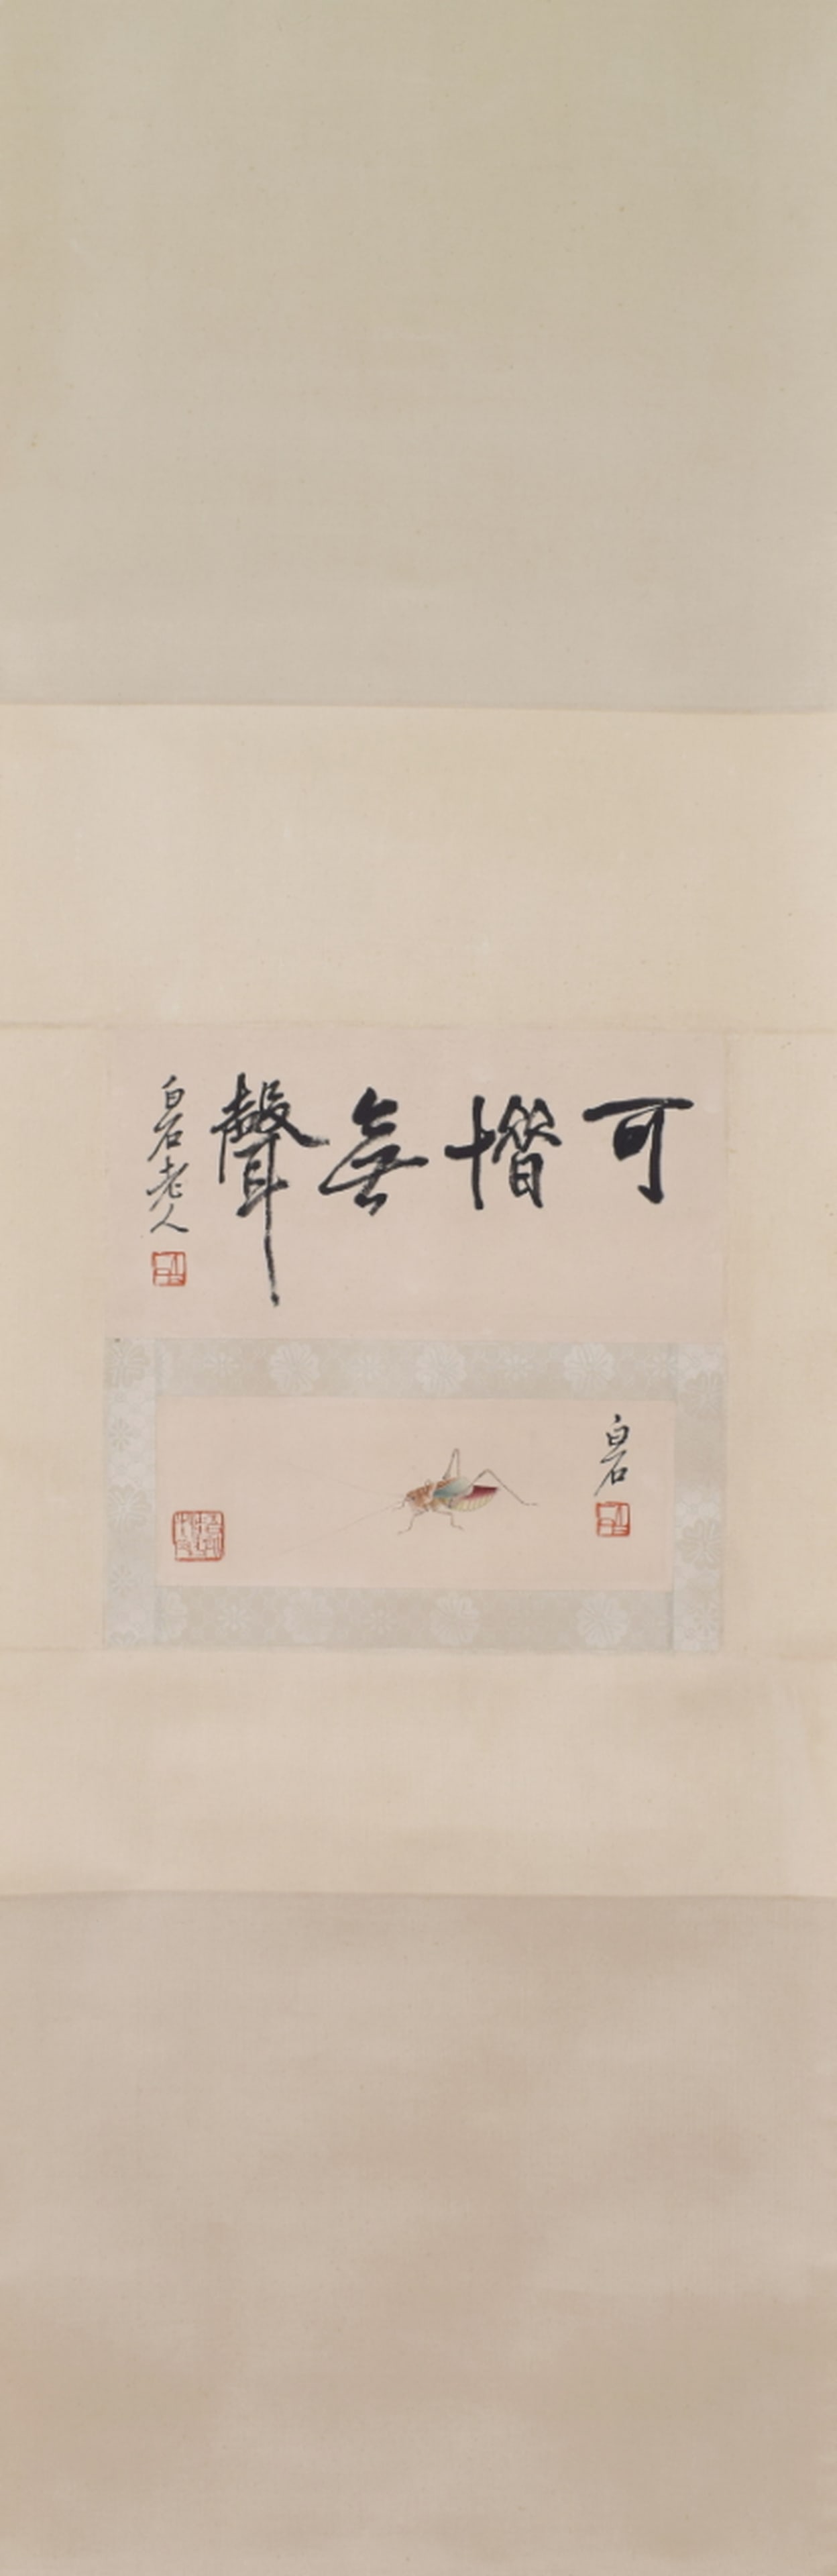 可惜無聲
白石老人
白石